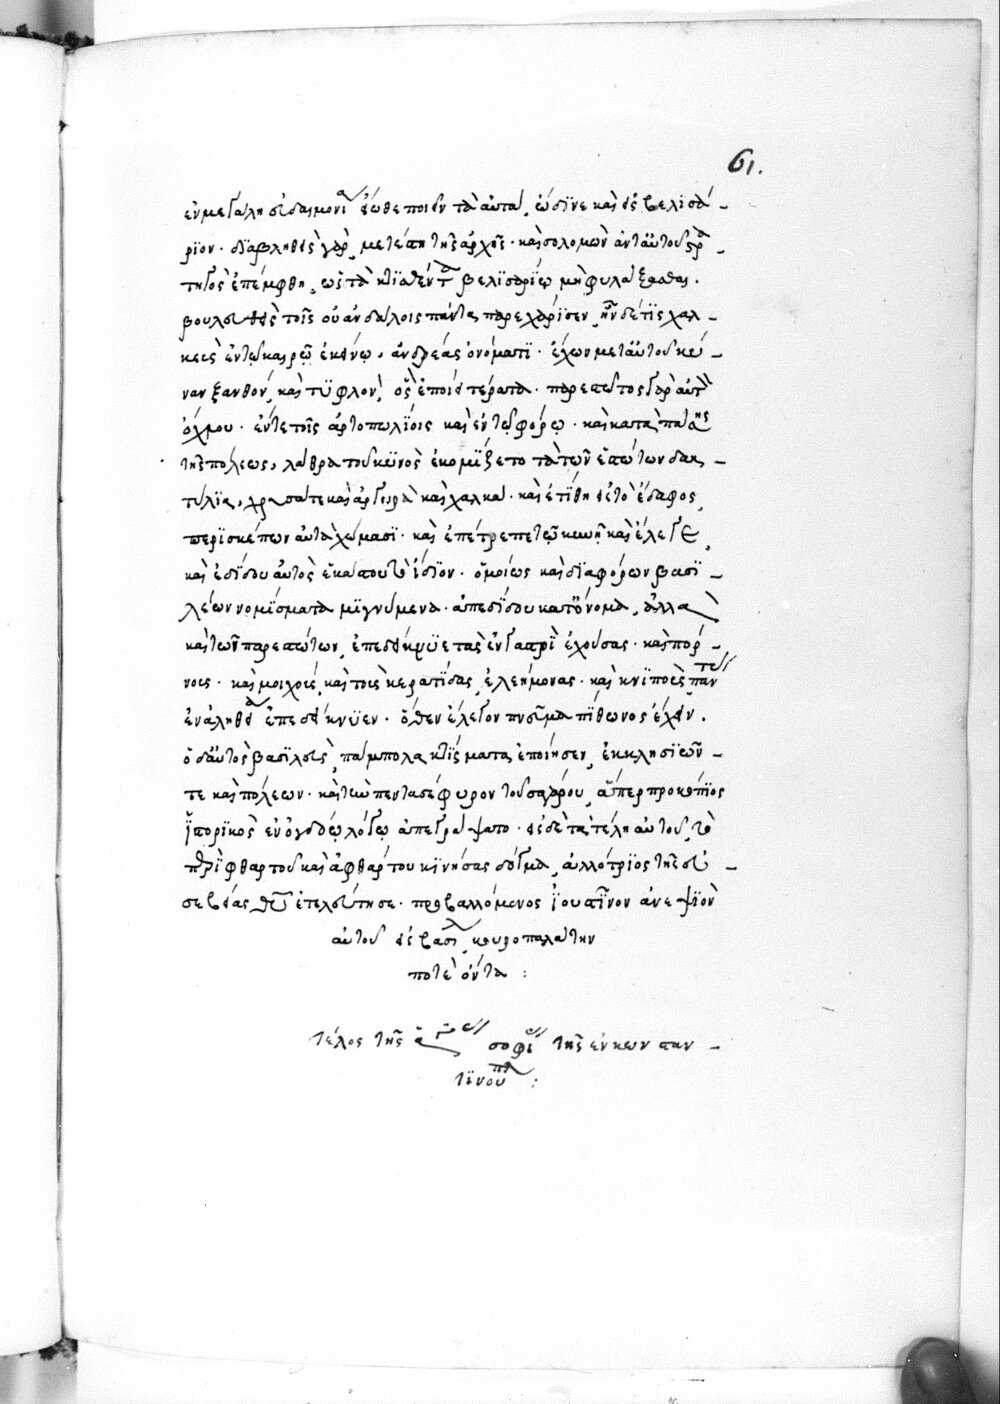 61.
ἐν μεγάλη εὐδαιμονία εἴωθε ποιεῖν τὰ αὐτὰ, ὡς ἵνε καὶ εἰς βελισά–
ριον· διαβληθεὶς γὰρ, μετέστη τῆς ἀρχῆς· καὶ σολομὼν ἀντ' αὐτοῦ στρα–
τηγὸς ἐπέμφθη, ὡς τὰ κτιαθέντα βελισαρίω μὴ φυλάξασθαι.
βουλευθεὶς τοῖς οὐανδάλοις πάντα παρεχώρισεν, ἦν δέ τις χαλ–
κεὺς ἐν τῷ καιρῷ ἐκείνω, ἀνδρέας ὀνόματι· ἔχων μετ' αὐτοῦ κύ–
ναν ξανθὸν, καὶ τϋφλὸν, ὃς ἐποίει τέρατα· παρεστῶτος γὰρ αὐτῶ
ὄχλου· ἔν τε τοῖς ἀρτοπωλίοις καὶ ἐν τῷ φόρω· καὶ κατὰ πάσης
τῆς πόλεως, λάθρα τοῦ κϋνὸς ἐκομίζετο τὰ τῶν ἑστώτων δακ–
τύλϊα, χρυσά τε καὶ ἀργυρὰ καὶ χαλκᾶ· καὶ ἐτίθη εἰς τὸ ἔδαφος,
περϊσκέπων αὐτὰ χώμασϊ· καὶ ἐπέτρεπε τῷ κυνῒ καὶ ἔλεγε,
καὶ ἐδίδου αὐτὸς ἑκάστου τὸ ἴδϊον· ὁμοίως καὶ δϊαφόρων βασϊ–
λέων νομίσματα μϊγνύμενα· ἀπεδίδου κατ' ὄνομα, ἀλλὰ
καὶ τῶν παρεστώτων, ἐπεδείκνϋε τὰς ἐν γαστρὶ ἐχούσας· καὶ πόρ–
νους· καὶ μοιχοὺς, καὶ τοὺς κερατίδας, ἐλεήμονας· καὶ κνϊποὺς, πάντας
ἐν ἀληθεία ἐπεδείκνϋεν· ὅθεν ἔλεγον πνεῦμα πίθωνος ἔχειν.
ὁ δ' αὐτὸς βασϊλεὺς, πάμπολα κτίσματα ἐποίησεν, ἐκκλησϊῶν–
τε καὶ πόλεων· καὶ τὴν πεντασέφυρον τοῦ σαγάρου, ἅπερ προκόπϊος
ἱστορικὸς ἐν ὀγδόω λόγω ἀπεγράψατο· εἰς δὲ τὰ τέλη αὐτοῦ, τὸ
περὶ φθαρτοῦ καὶ ἀφθάρτου κϊνήσας δόγμα, ἀλλότριος τῆς εὐ–
σεβείας θεοῦ ἐτελεύτησε· προβαλλόμενος ἰουστῖνον ἀνεψϊὸν
αὐτοῦ εἰς βασι, κουροπαλάτην
ποτὲ ὄντα :
τέλος τῆς ἁγίας σοφί τῆς ἐν κωνσταν–
τϊνου :